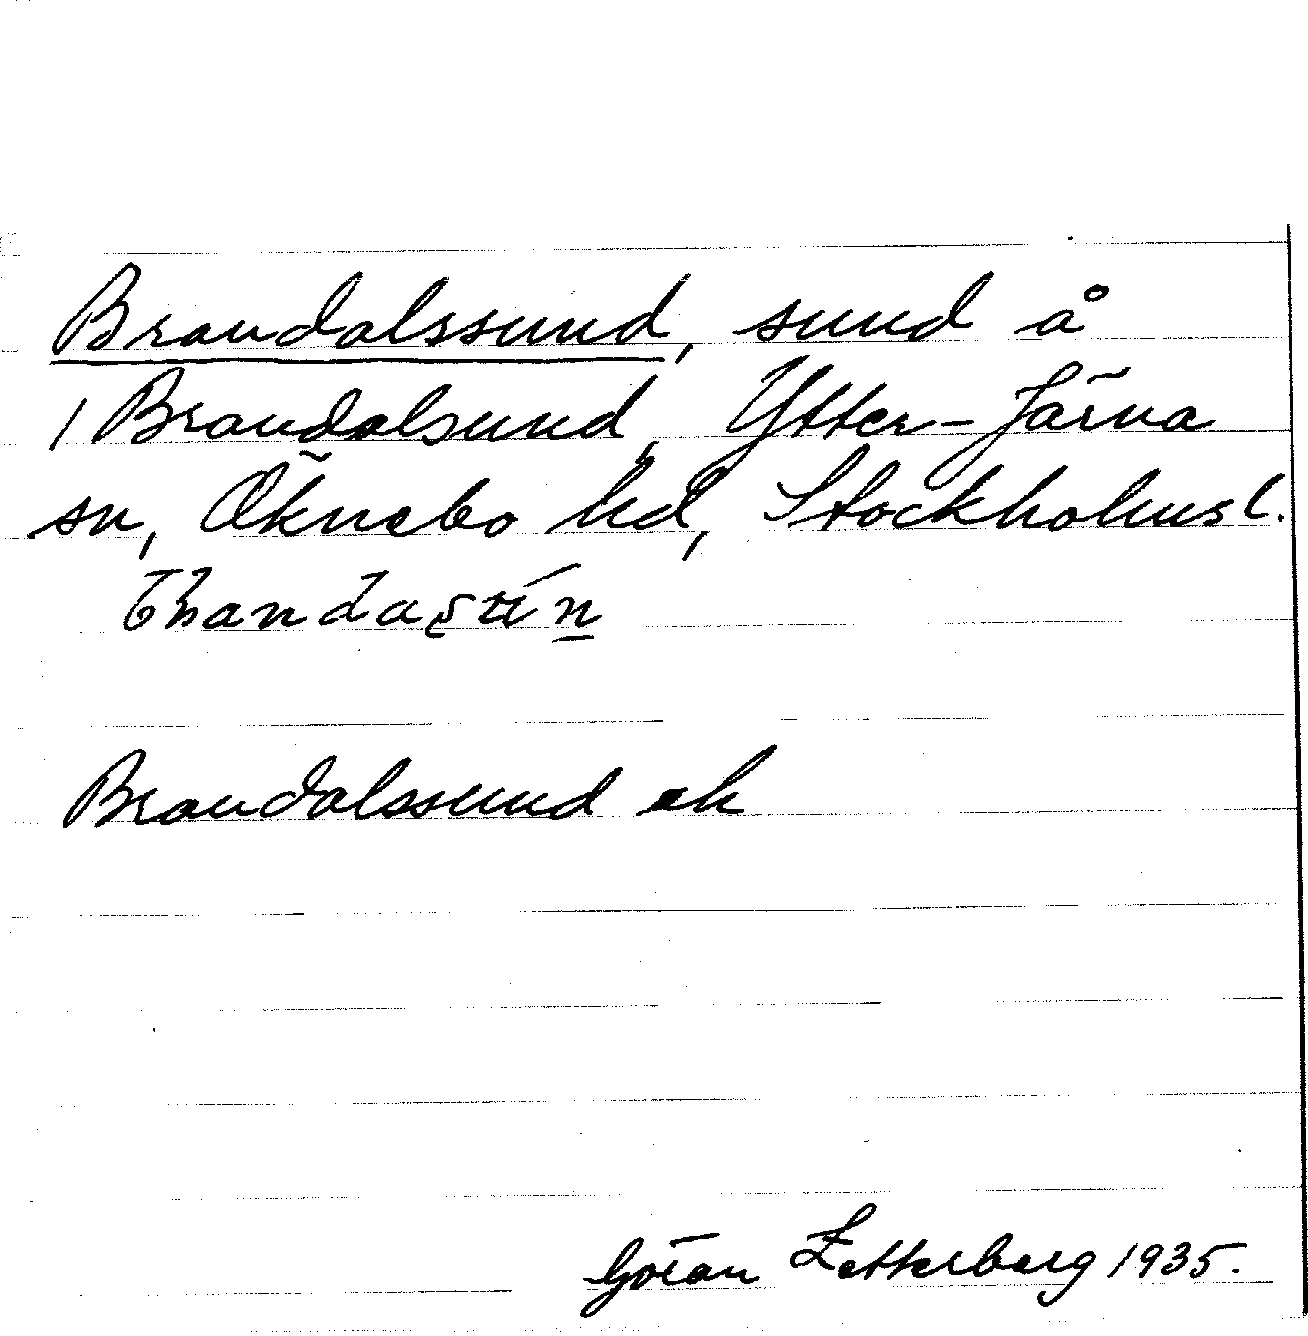 Brandalssund, sund å
/ Brandalsund, Ytter-Järna
sn, Öknebo hd, Stockholms l.
Brandalssund ek
Göran Zetterberg 1935.